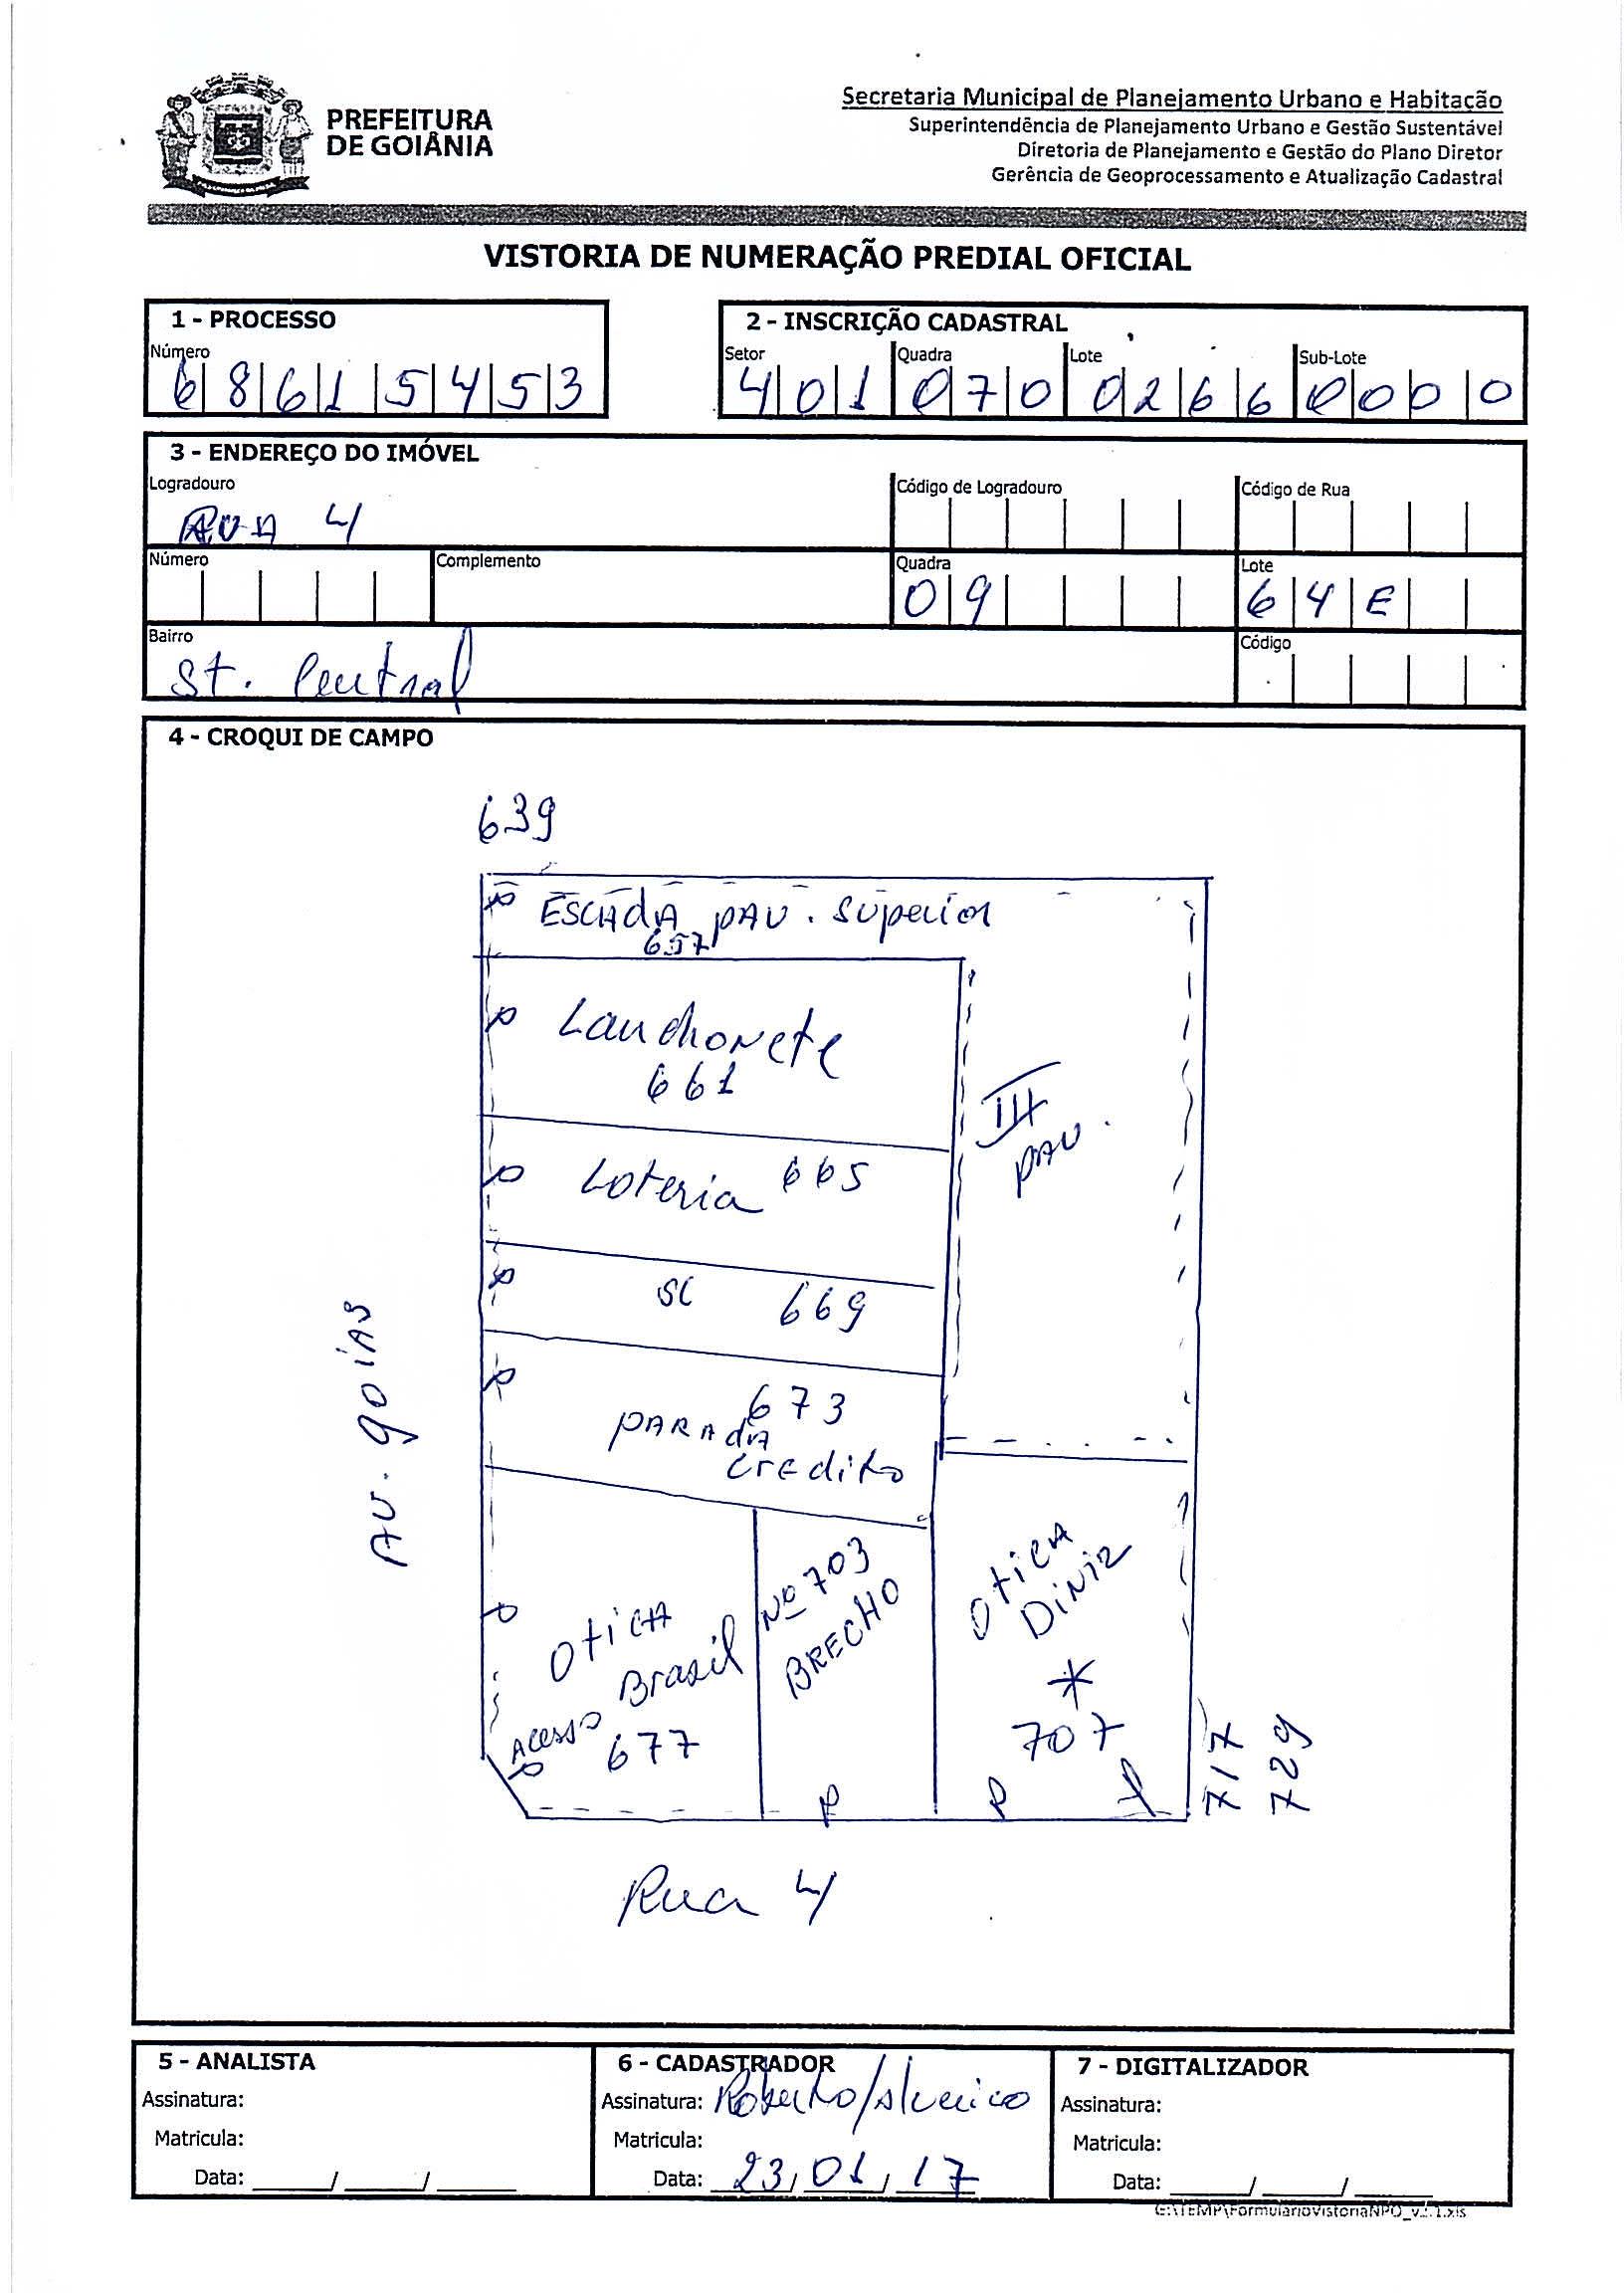 PREFEITURA
DE GOIÂNIA
Secretaria Municipal de Planejamento Urbano e Habitação
Superintendência de Planejamento Urbano e Gestão Sustentável
Diretoria de Planejamento e Gestão do Plano Diretor
Gerência de Geoprocessamento e Atualização Cadastral
VISTORIA DE NUMERAÇÃO PREDIAL OFICIAL
1 - PROCESSO
Número
6 8 6 1 5 4 5 3
2 - INSCRIÇÃO CADASTRAL
Setor Quadra Lote Sub-Lote
4 0 1 0 7 0 0 2 6 6 0 0 0 0
3 - ENDEREÇO DO IMÓVEL
Logradouro Código de Logradouro Código de Rua
RUA 4
Número Complemento Quadra Lote
0 9 6 4 E
Bairro Código
St. Central
4 - CROQUI DE CAMPO
639
ESCAdA pAV. Superior
657
Lanchonete
661
III
pAV.
Loteria 665
SC 669
AV. goiAS
673
pARA dA
CrEdito
OtiCA
Brasil
Acesso
677
Nº 703
BRECHO
OtiCA
DiNiz
*
707
717
729
Rua 4
5 - ANALISTA
Assinatura:
Matricula:
Data: ____/____/____
6 - CADASTRADOR
Assinatura: Roberto/
Matricula:
Data: 23/01/17
7 - DIGITALIZADOR
Assinatura:
Matricula:
Data: ____/____/____
G:\TEMP\FormularioVistoriaNPO_v2.1.xls